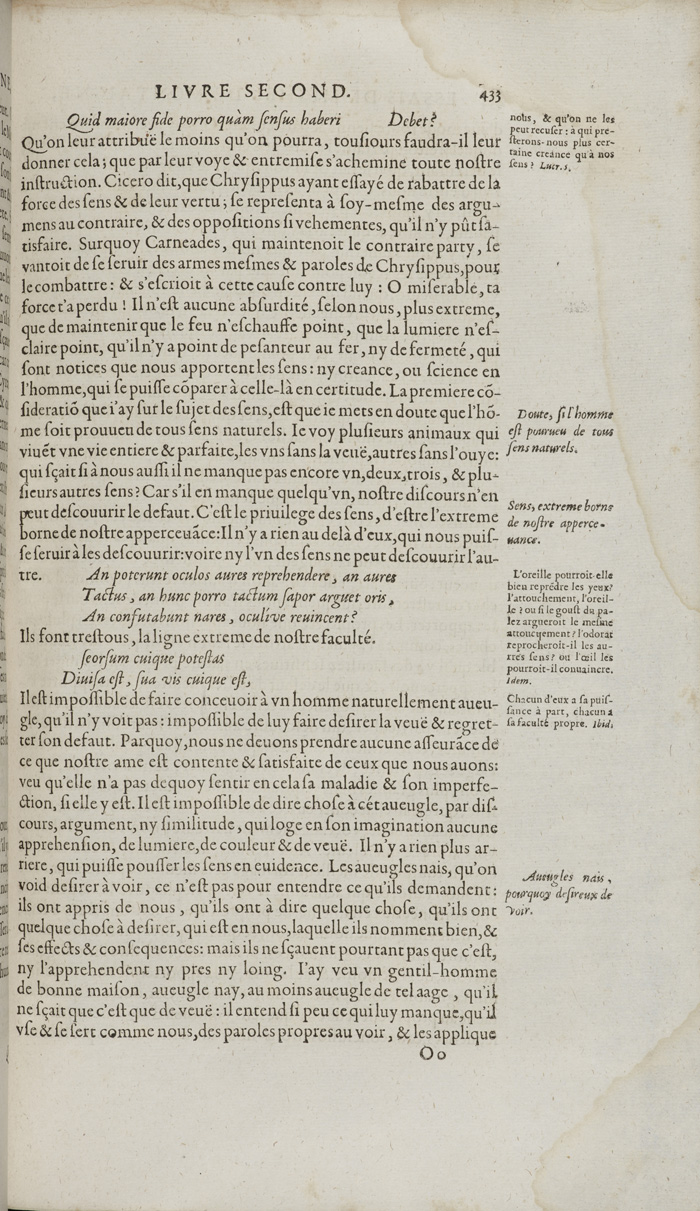 LIVRE SECOND. 433
Quid maiore fide porro quàm ſenſus haberi Debet?
Qu'on leur attribuë le moins qu'on pourra, touſiours faudra-il leur
donner cela; que par leur voye & entremiſe s'achemine toute noſtre
inſtruction. Cicero dit, que Chryſippus ayant eſſayé de rabattre de la
force des ſens & de leur vertu; ſe repreſenta à ſoy-meſme des argu-
mens au contraire, & des oppoſitions ſi vehementes, qu'il n'y pût ſa-
tisfaire. Surquoy Carneades, qui maintenoit le contraire party, ſe
vantoit de ſe ſeruir des armes meſmes & paroles de Chryſippus, pour
le combattre: & s'eſcrioit à cette cauſe contre luy: O miſerable, ta
force t'a perdu! Il n'eſt aucune abſurdité, ſelon nous, plus extreme,
que de maintenir que le feu n'eſchauffe point, que la lumiere n'eſ-
claire point, qu'il n'y a point de peſanteur au fer, ny de fermeté, qui
ſont notices que nous apportent les ſens: ny creance, ou ſcience en
l'homme, qui ſe puiſſe cõparer à celle-là en certitude. La premiere cõ-
ſideratiõ que i'ay ſur le ſujet des ſens, eſt que ie mets en doute que l'hõ-
me ſoit prouueu de tous ſens naturels. Ie voy pluſieurs animaux qui
viuẽt vne vie entiere & parfaite, les vns ſans la veuë, autres ſans l'ouye:
qui ſçait ſi à nous auſſi il ne manque pas encore vn, deux, trois, & plu-
ſieurs autres ſens? Car s'il en manque quelqu'vn, noſtre diſcours n'en
peut deſcouurir le defaut. C'eſt le priuilege des ſens, d'eſtre l'extreme
borne de noſtre apperceuãce: Il n'y a rien au delà d'eux, qui nous puiſ-
ſe ſeruir à les deſcouurir: voire ny l'vn des ſens ne peut deſcouurir l'au-
tre. An poterunt oculos aures reprehendere, an aures
Tactus, an hunc porro tactum ſapor arguet oris,
An confutabunt nares, oculive reuincent?
Ils font treſtous, la ligne extreme de noſtre faculté.
ſeorſum cuique poteſtas
Diuiſa eſt, ſua vis cuique eſt,
Il eſt impoſſible de faire conceuoir à vn homme naturellement aueu-
gle, qu'il n'y voit pas: impoſſible de luy faire deſirer la veuë & regret-
ter ſon defaut. Parquoy, nous ne deuons prendre aucune aſſeurãce de
ce que noſtre ame eſt contente & ſatisfaite de ceux que nous auons:
veu qu'elle n'a pas dequoy ſentir en cela ſa maladie & ſon imperfe-
ction, ſi elle y eſt. Il eſt impoſſible de dire choſe à cét aueugle, par diſ-
cours, argument, ny ſimilitude, qui loge en ſon imagination aucune
apprehenſion, de lumiere, de couleur & de veuë. Il n'y a rien plus ar-
riere, qui puiſſe pouſſer les ſens en euidence. Les aueugles nais, qu'on
void deſirer à voir, ce n'eſt pas pour entendre ce qu'ils demandent:
ils ont appris de nous, qu'ils ont à dire quelque choſe, qu'ils ont
quelque choſe à deſirer, qui eſt en nous, laquelle ils nomment bien, &
ſes effects & conſequences: mais ils ne ſçauent pourtant pas que c'eſt,
ny l'apprehendent ny pres ny loing. I'ay veu vn gentil-homme
de bonne maiſon, aueugle nay, au moins aueugle de tel aage, qu'il
ne ſçait que c'eſt que de veuë: il entend ſi peu ce qui luy manque, qu'il
vſe & ſe ſert comme nous, des paroles propres au voir, & les applique
Oo
nous, & qu'on ne les
peut recuſer: à qui pre-
ſterons-nous plus cer-
taine creance qu'à nos
ſens? Lucr. 5.
Doute, ſi l'homme
eſt pourueu de tous
ſens naturels.
Sens, extreme borne
de noſtre apperce-
uance.
L'oreille pourroit-elle
bien reprẽdre les yeux?
l'attouchement, l'oreil-
le? ou ſi le gouſt du pa-
lez argueroit le meſme
attouchement? l'odorat
reprocheroit-il les au-
tres ſens? ou l'œil les
pourroit-il conuaincre.
Idem.
Chacun d'eux a ſa puiſ-
ſance à part, chacun a
ſa faculté propre. Ibid.
Aueugles nais,
pourquoy deſireux de
voir.